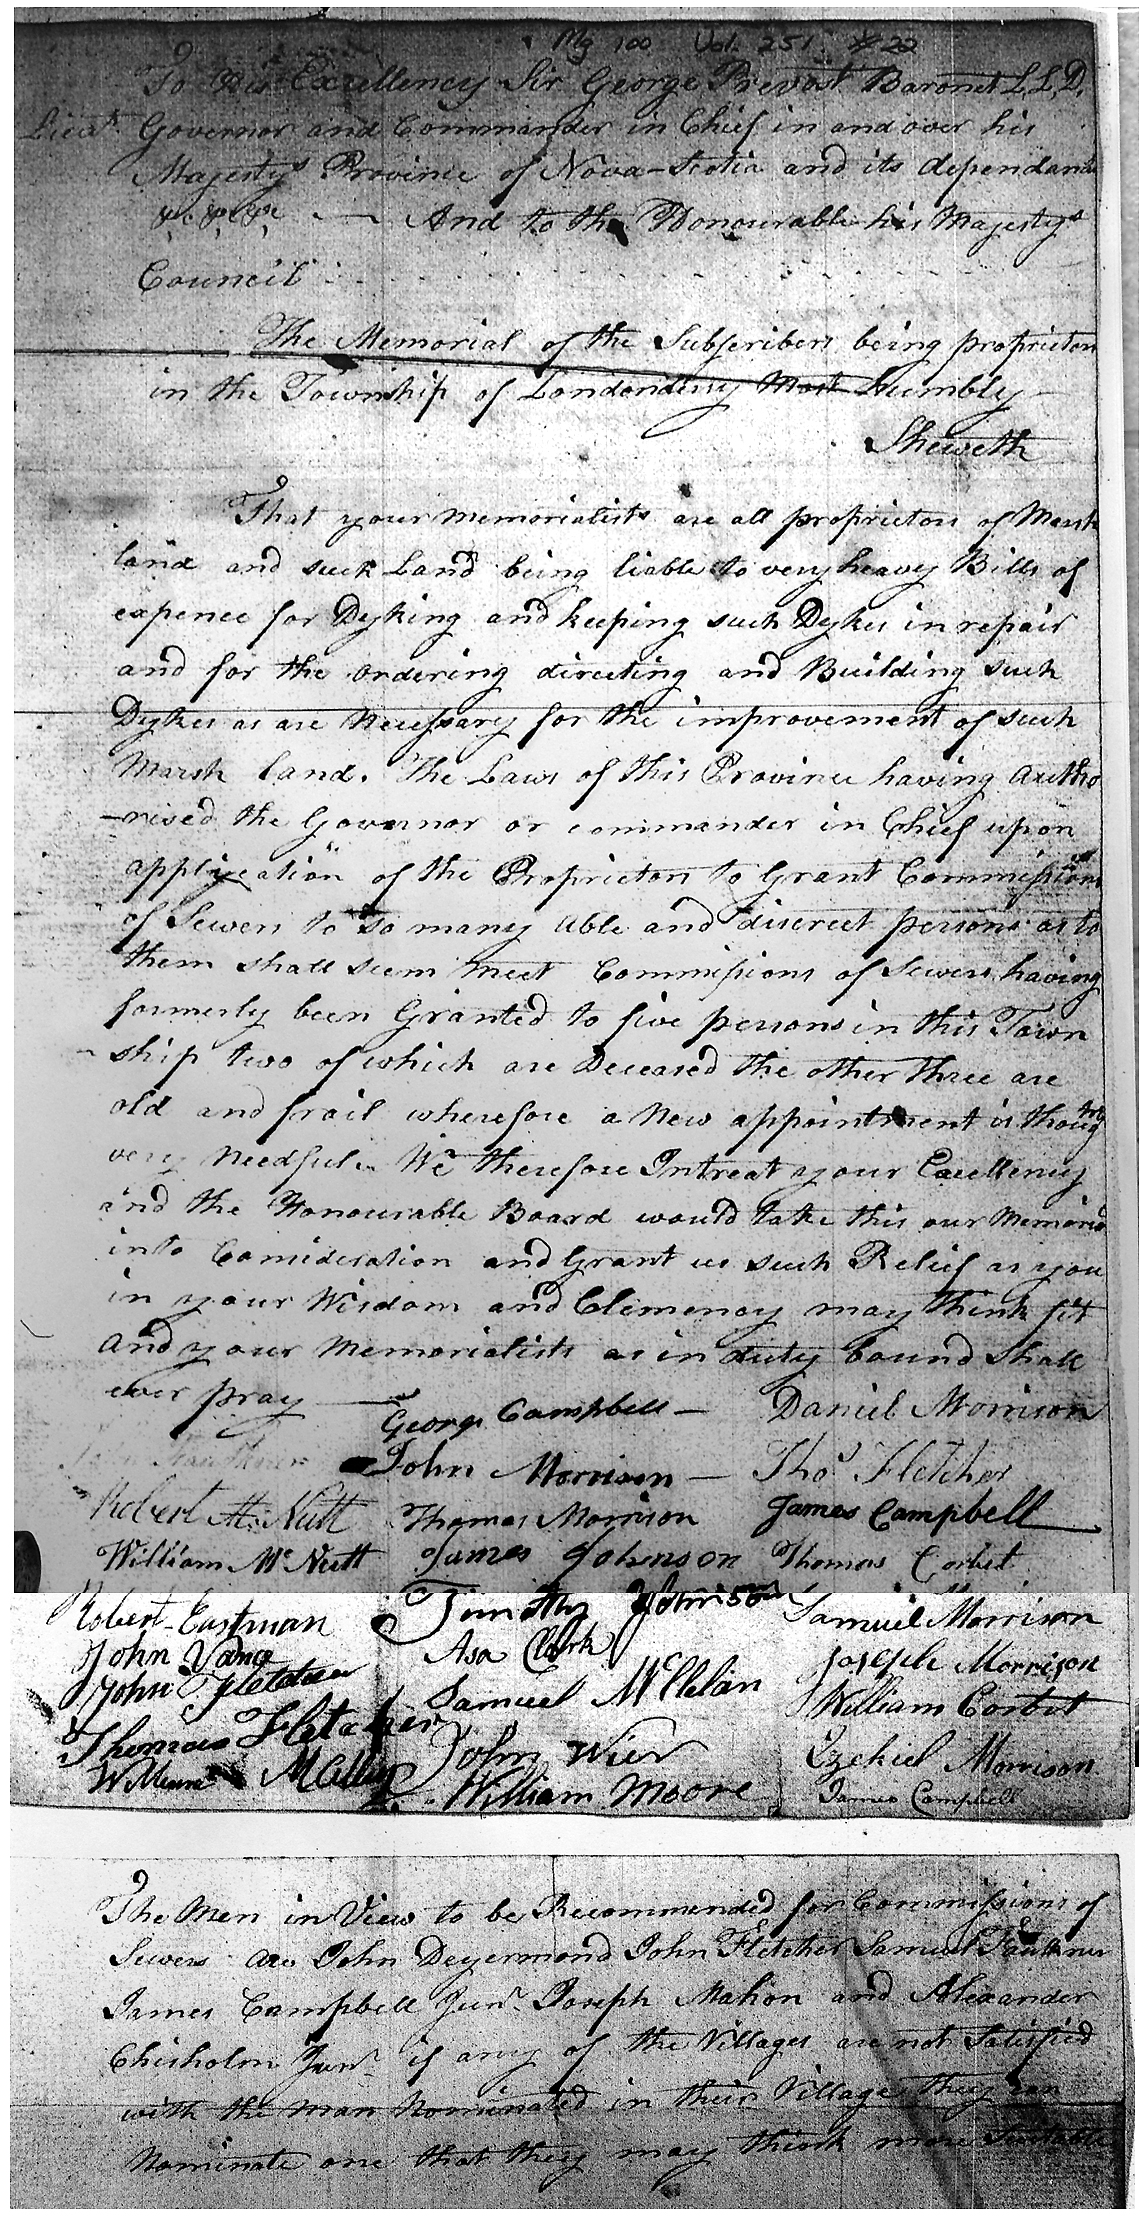 Mg 100 Vol. 251 # 22
To His Excellency Sir George Prevost Baronet L,L,D,
Lieut. Governor and Commander in Chief in and over his
Majestys Province of Nova-Scotia and its dependancies
&c, &c, &c, — And to the Honourable his Majestys
Council
The Memorial of the Subscribers being proprietors
in the Township of Londonderry Most Humbly
Sheweth
That your memorialists are all proprietors of Marsh
land and such Land being liable to very heavy Bills of
expence for Dyking and keeping such Dykes in repair
and for the ordering directing and Building such
Dykes as are Necessary for the improvement of such
Marsh land. The Laws of this Province having autho
-rised the Governor or commander in Chief upon
application of the Proprietors to Grant Commissions
of Sewers to so many able and discreet persons as to
them shall seem meet Commissions of Sewers having
formerly been Granted to five persons in this Town
-ship two of which are Deceased the other three are
old and frail wherefore a New appointment is thought
very Needful. We therefore Intreat your Excellency
and the Honourable Board would take this our Memorial
into Consideration and Grant us such Relief as you
in your Wisdom and Clemency may think fit
And your Memorialists as in duty bound Shall
ever pray —
George Campbell — Daniel Morrison
John Morrison — Thos. Fletcher
Robert McNutt Thomas Morrison James Campbell
William McNutt James Johnson Thomas Corbet
Robert Eastman Timothy Johnson Samuel Morrison
John Vance Asa Clark Joseph Morrison
John Fletcher Samuel McClelan William Corbet
Thomas Fletcher John Wier Ezekiel Morrison
William William Moore James Campbell
The Men in View to be Recommended for Commissions of
Sewers are John Deyermond John Fletcher Samuel Faulkner
James Campbell Junr. Joseph Mahon and Alexander
Chisholm Junr. if any of the Villages are not Satisfied
with the man Nominated in their Village they can
Nominate one that they may think more Suitable